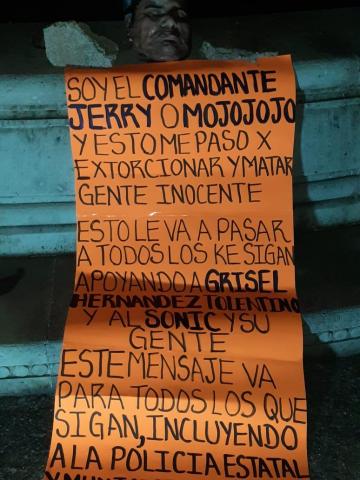 SOY EL COMANDANTE
JERRY O MOJOJOJO
Y ESTO ME PASO X
EXTORCIONAR Y MATAR
GENTE INOCENTE
ESTO LE VA A PASAR
A TODOS LOS KE SIGAN
APOYANDO A GRISEL
HERNANDEZ TOLENTINO
Y AL SONIC Y SU
GENTE
ESTE MENSAJE VA
PARA TODOS LOS QUE
SIGAN, INCLUYENDO
A LA POLICIA ESTATAL